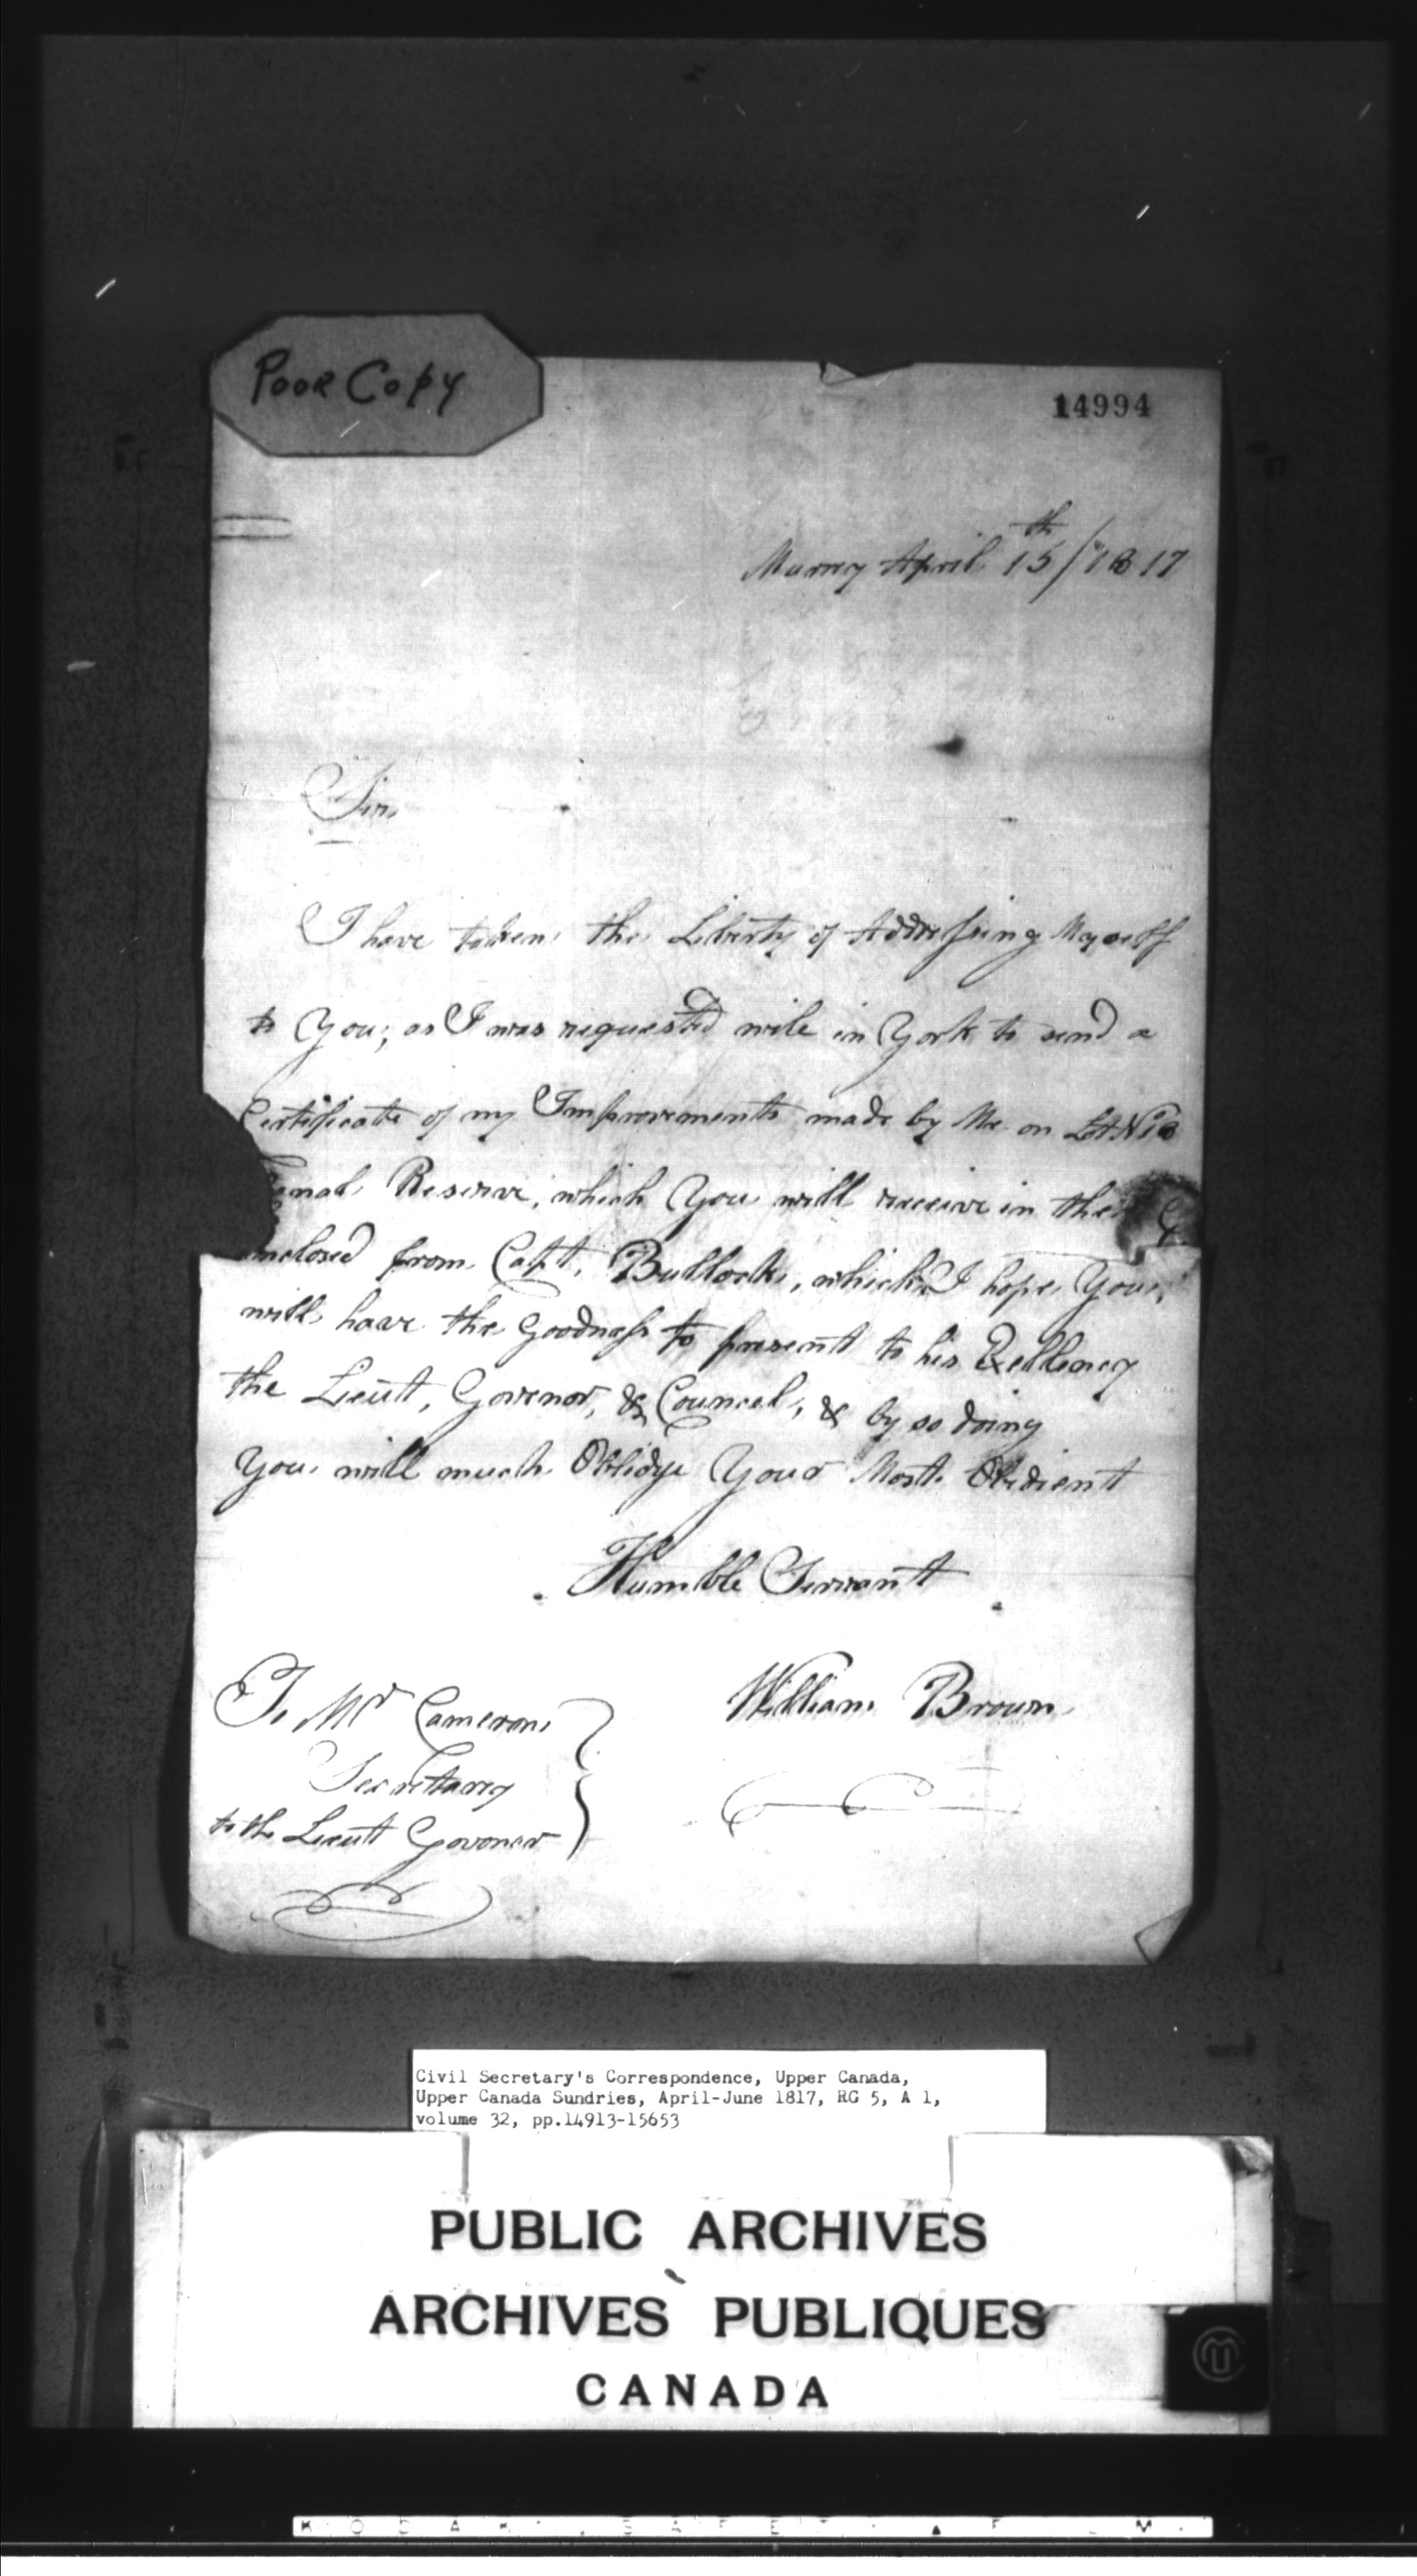 Poor Copy
14994
Murray April 15th/1817
Sir,
I have taken the Liberty of Addressing Myself
to You; as I was requested wile in York to send a
Certificate of my Improvements made by Me on Lot No
Reserve, which You will receive in the
enclosed from Capt. Bullock, which I hope You
will have the Goodness to present to his Exellency
the Lieut, Govenor, & Councel, & by so doing
You will much Oblidge Your Most Obedient
Humble Servant
William Brown
To Mr Cameron
Secrettarey
to the Lieut Govonor
Civil Secretary's Correspondence, Upper Canada,
Upper Canada Sundries, April-June 1817, RG 5, A 1,
volume 32, pp.14913-15653
PUBLIC ARCHIVES
ARCHIVES PUBLIQUES
CANADA